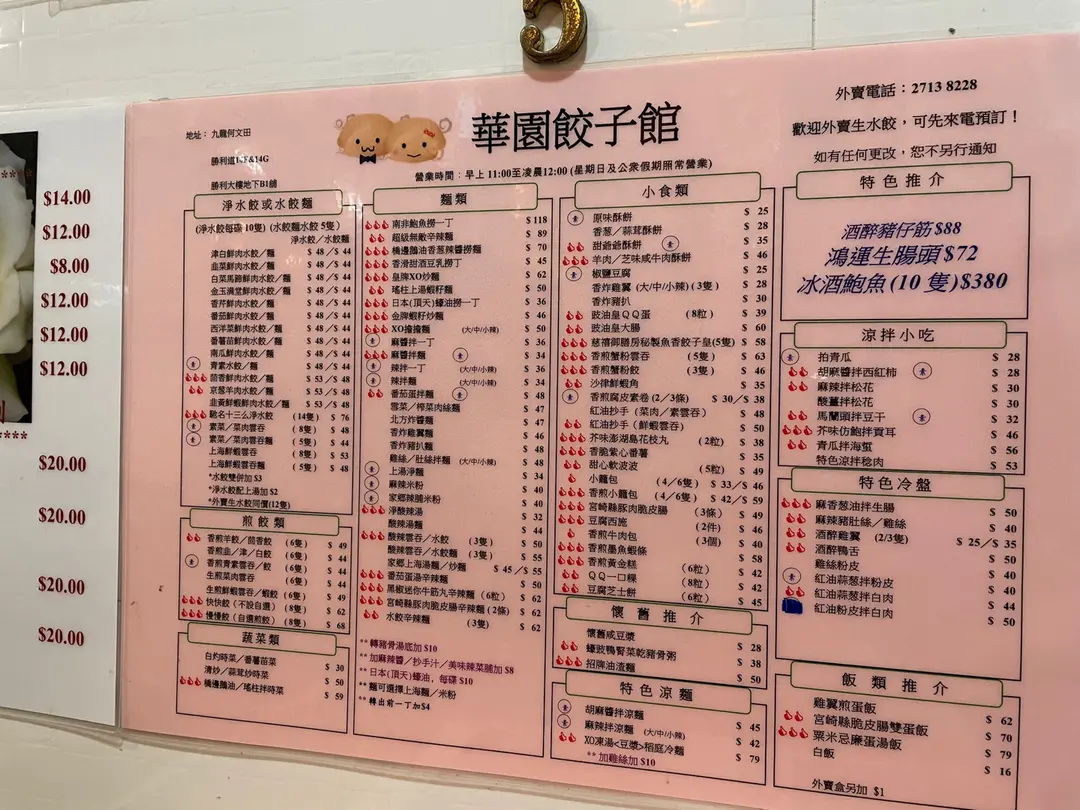 5
$14.00
$12.00
$8.00
$12.00
$12.00
$12.00
****
$20.00
$20.00
$20.00
$20.00
地址： 九龍何文田
勝利道14F&14G
勝利大樓地下B1舖
華園餃子館
營業時間：早上 11:00至凌晨12:00 (星期日及公衆假期照常營業)
外賣電話：2713 8228
歡迎外賣生水餃，可先來電預訂！
如有任何更改，恕不另行通知
淨水餃或水餃麵
(淨水餃每碟 10隻) (水餃麵水餃 5隻)
淨水餃／水餃麵
津白鮮肉水餃／麵 $ 48 ／$ 44
韭菜鮮肉水餃／麵 $ 48 ／$ 44
白菜馬蹄鮮肉水餃／麵 $ 48 ／$ 44
金玉滿堂鮮肉水餃／麵 $ 48 ／$ 44
香芹鮮肉水餃／麵 $ 48 ／$ 44
番茄鮮肉水餃／麵 $ 48 ／$ 44
西洋菜鮮肉水餃／麵 $ 48 ／$ 44
番薯苗鮮肉水餃／麵 $ 48 ／$ 44
南瓜鮮肉水餃／麵 $ 48 ／$ 44
素 青素水餃／麵 $ 48 ／$ 44
茴香鮮肉水餃／麵 $ 53 ／$ 48
京葱羊肉水餃／麵 $ 53 ／$ 48
韭黃鮮蝦鮮肉水餃／麵 $ 53 ／$ 48
馳名十三么淨水餃 (14隻) $ 76
素 素菜／菜肉雲吞 (8隻) $ 48
素 素菜／菜肉雲吞麵 (5隻) $ 44
上海鮮蝦雲吞 (8隻) $ 53
上海鮮蝦雲吞麵 (5隻) $ 48
*水餃雙併加 $3
*淨水餃配上湯加 $2
*外賣生水餃同價(12隻)
煎餃類
香煎羊餃／茴香餃 (6隻) $ 49
香煎韭／津／白餃 (6隻) $ 44
素 香煎青素雲吞／餃 (6隻) $ 44
生煎菜肉雲吞 (6隻) $ 44
生煎鮮蝦雲吞／蝦餃 (6隻) $ 49
快快餃（不設自選） (8隻) $ 62
慢慢餃（自選煎餃） (8隻) $ 68
蔬菜類
白灼時菜／番薯苗菜 $ 30
清炒／蒜茸炒時菜 $ 50
橋邊鵝油／瑤柱拌時菜 $ 59
麵類
南非鮑魚撈一丁 $ 118
超級無敵辛辣麵 $ 89
橋邊鵝油香葱辣醬撈麵 $ 70
香港甜酒豆乳撈丁 $ 45
皇牌XO炒麵 $ 62
瑤柱上湯蝦籽麵 $ 50
日本(頂天)蠔油撈一丁 $ 36
金牌蝦籽炒麵 $ 46
XO擔擔麵 (大/中/小辣) $ 50
素 麻醬拌一丁 $ 36
麻醬拌麵 素 $ 34
素 辣拌一丁 (大/中/小辣) $ 36
素 辣拌麵 (大/中/小辣) $ 34
番茄蛋拌麵 素 $ 48
雪菜／榨菜肉絲麵 $ 48
北方炸醬麵 $ 47
香炸雞翼麵 $ 46
香炸豬扒麵 $ 48
雞絲／肚絲拌麵 (大/中/小辣) $ 48
素 上湯淨麵 $ 34
素 麻辣米粉 $ 40
素 家鄉辣腩米粉 $ 40
淨酸辣湯 $ 32
酸辣湯麵 $ 44
酸辣雲吞／水餃 (3隻) $ 50
酸辣雲吞／水餃麵 (3隻) $ 55
家鄉上海湯麵／炒麵 $ 45 ／$ 55
番茄蛋湯辛辣麵 $ 50
黑椒迷你牛筋丸辛辣麵 (6粒) $ 62
宮崎縣豚肉脆皮腸辛辣麵 (2條) $ 62
水餃辛辣麵 (3隻) $ 62
** 轉豬骨湯底加 $10
** 加麻辣醬／抄手汁／美味辣菜脯加 $8
** 日本(頂天)蠔油，每碟 $10
** 麵可選擇上海麵／米粉
** 轉出前一丁加$4
小食類
素 原味酥餅 $ 25
香葱／蒜茸酥餅 $ 28
甜爺爺酥餅 素 $ 35
羊肉／芝味咸牛肉酥餅 $ 46
素 椒鹽豆腐 $ 25
香炸雞翼（大/中/小辣）(3隻) $ 28
香炸豬扒 $ 30
豉油皇ＱＱ蛋 (8粒) $ 39
豉油皇大腸 $ 60
慈禧御膳房秘製魚香餃子皇(5隻) $ 58
香煎蟹粉雲吞 (5隻) $ 63
香煎蟹粉餃 (3隻) $ 46
沙律鮮蝦角 $ 35
素 香煎腐皮素卷 (2／3條) $ 30／$ 38
紅油抄手（菜肉／素雲吞） $ 48
紅油抄手（鮮蝦雲吞） $ 50
芥味澎湖島花枝丸 (2粒) $ 38
香脆紫心番薯 $ 35
甜心軟波波 (5粒) $ 49
小籠包 (4／6隻) $ 33／$ 46
香煎小籠包 (4／6隻) $ 42／$ 59
宮崎縣豚肉脆皮腸 (3條) $ 49
豆腐西施 (2件) $ 46
香煎牛肉包 (3個) $ 40
香煎墨魚蝦條 $ 58
香煎黃金糕 (6粒) $ 42
ＱＱ一口粿 (8粒) $ 42
豆腐芝士餅 (6粒) $ 45
懷舊推介
懷舊咸豆漿 $ 28
蠔豉鴨腎菜乾豬骨粥 $ 38
招牌油渣麵 $ 50
特色涼麵
素 胡麻醬拌涼麵 $ 45
素 麻辣拌涼麵 (大/中/小辣) $ 42
XO凍湯<豆漿>稻庭冷麵 $ 79
**加雞絲加 $10
特色推介
酒醉豬仔筋 $88
鴻運生腸頭 $72
冰酒鮑魚 (10 隻)$380
涼拌小吃
素 拍青瓜 $ 28
胡麻醬拌西紅柿 素 $ 28
麻辣拌松花 $ 30
酸薑拌松花 $ 30
馬蘭頭拌豆干 素 $ 32
芥味仿鮑拌貢耳 $ 46
青瓜拌海蜇 $ 56
特色涼拌稔肉 $ 53
特色冷盤
麻香葱油拌生腸 $ 50
麻辣豬肚絲／雞絲 $ 40
酒醉雞翼 (2/3隻) $ 25／$ 35
酒醉鴨舌 $ 50
雞絲粉皮 $ 50
素 紅油蒜葱拌粉皮 $ 40
紅油蒜葱拌白肉 $ 44
紅油粉皮拌白肉 $ 50
飯類推介
雞翼煎蛋飯 $ 62
宮崎縣脆皮腸雙蛋飯 $ 70
粟米忌廉蛋湯飯 $ 79
白飯 $ 16
外賣盒另加 $1